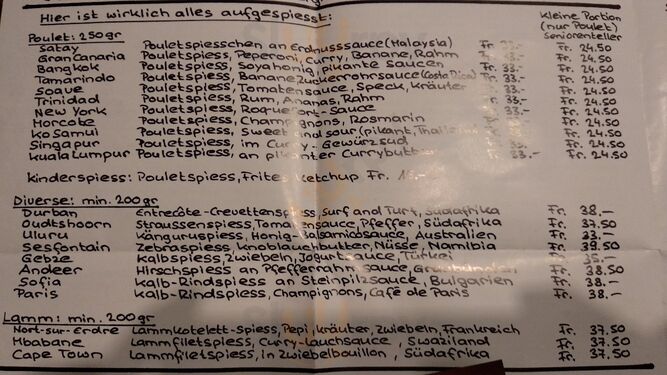 Hier ist wirklich alles aufgespiesst: kleine Portion
(nur Poulet)
Poulet: 250gr Seniorenteller
Satay Pouletspiesschen an Erdnusssauce (Malaysia) Fr. 33.- Fr. 24.50
Gran Canaria Pouletspiess, Peperoni, Curry, Banane, Rahm Fr. 33.- Fr. 24.50
Bangkok Pouletspiess, Soyahonig, pikante Saucen Fr. 33.- Fr. 24.50
Tamarindo Pouletspiess, Banane Zuckerrohrsauce (Costa Rica) Fr. 33.- Fr. 24.50
Soave Pouletspiess, Tomatensauce, Speck, Kräuter Fr. 33.- Fr. 24.50
Trinidad Pouletspiess, Rum, Ananas, Rahm Fr. 33.- Fr. 24.50
New York Pouletspiess, Roquefort-Sauce Fr. 33.- Fr. 24.50
Horcote Pouletspiess, Champignons, Rosmarin Fr. 33.- Fr. 24.50
Ko Samui Pouletspiess, Sweet and sour (pikant, Fr. 33.- Fr. 24.50
Singapur Pouletspiess, im Curry-Gewürzsud Fr. 33.- Fr. 24.50
Kuala Lumpur Pouletspiess, an pikanter Currybutter Fr. 33.- Fr. 24.50
Kinderspiess: Pouletspiess, Frites Ketchup Fr.
Diverse: min. 200gr
Durban Entrecôte-Crevettenspiess, Surf and Turf, Südafrika Fr. 38.-
Oudtshoorn Straussenspiess, Tomatensauce, Pfeffer, Südafrika Fr. 37.50
Uluru Känguruspiess, Honig-Balsamicosauce, Australien Fr. 33.-
Sesfontain Zebraspiess, Knoblauchbutter, Nüsse, Namibia Fr. 39.50
Gebze Kalbspiess, Zwiebeln, Jogurtsauce, Türkei Fr.
Andeer Hirschspiess an Pfefferrahm Sauce, Graubünden Fr. 38.50
Sofia Kalb-Rindspiess an Steinpilzsauce, Bulgarien Fr. 38.-
Paris Kalb-Rindspiess, Champignons, Café de Paris Fr. 38.-
Lamm: min. 200gr
Nort-sur-Erdre Lammkotelett-Spiess, Pepi, Kräuter, Zwiebeln, Frankreich Fr. 37.50
Mbabane Lammfiletspiess, Curry-Lauchsauce, Swaziland Fr. 37.50
Cape Town Lammfiletspiess, in Zwiebelbouillon, Südafrika Fr. 37.50